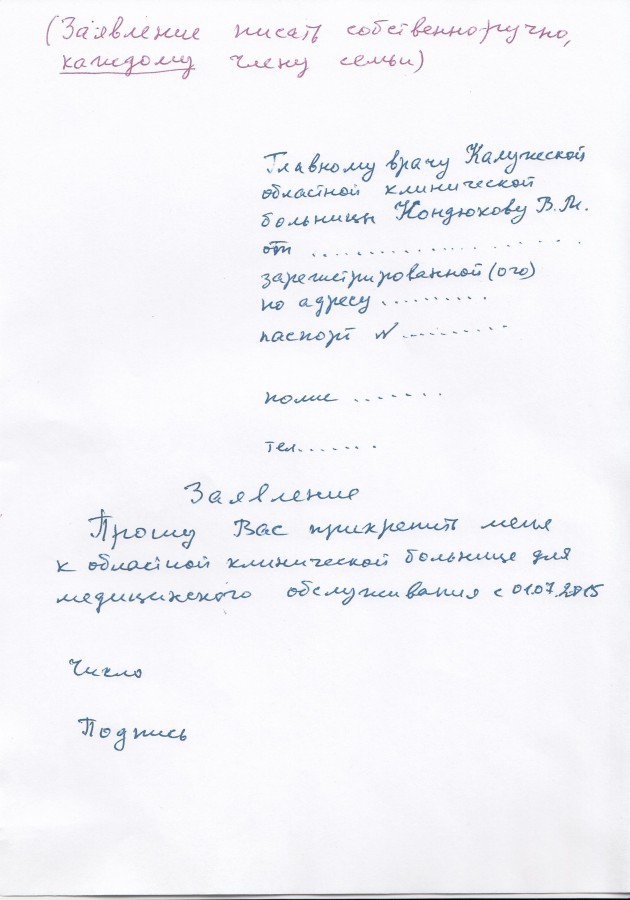 (Заявление писать собственноручно,
каждому члену семьи)
Главному врачу Калужской
областной клинической
больницы Кондюкову В.М.
от ..............................
зарегистрированной(ого)
по адресу ..........
паспорт N ............
полис .......
тел.......
Заявление
Прошу Вас прикрепить меня
к областной клинической больнице для
медицинского обслуживания с 01.07.2015
Число
Подпись